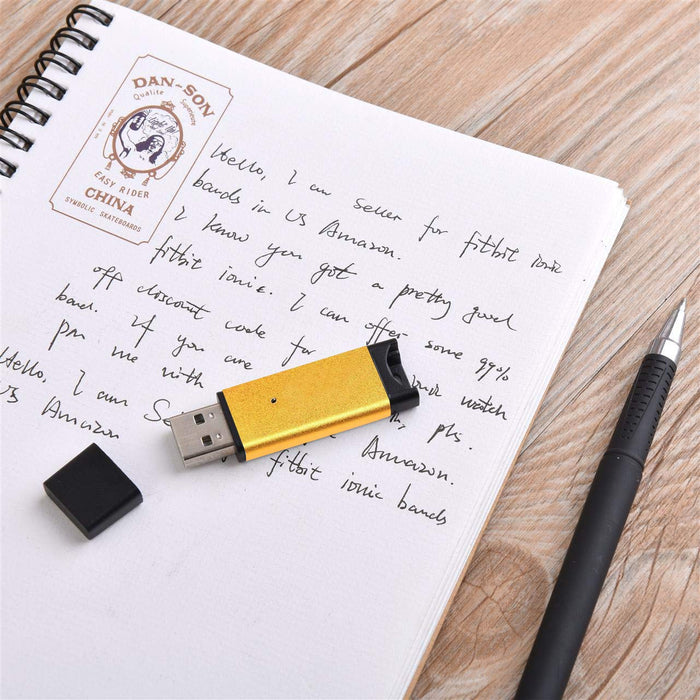 DAN-SON
Qualite Superieure
Light My
EASY RIDER
CHINA
SYMBOLIC SKATEBOARDS
Hello, I am seller for fitbit ionic
bands in US Amazon.
I know you got a pretty good
fitbit ionic. I can offer some 99%
off discount code for ionic watch
band. If you are pls.
pm me with Amazon.
Hello, I am Se fitbit ionic bands
US Amazon